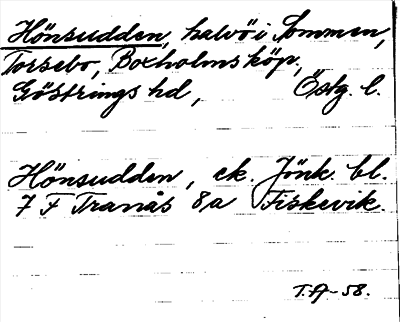 Hönsudden, halvö i Sommen,
Torsebo, Boxholms köp,
Göstrings hd, Östg. l.
Hönsudden, ek. Jönk. bl.
7 F Tranås 8a Fiskevik.
T. A-58.